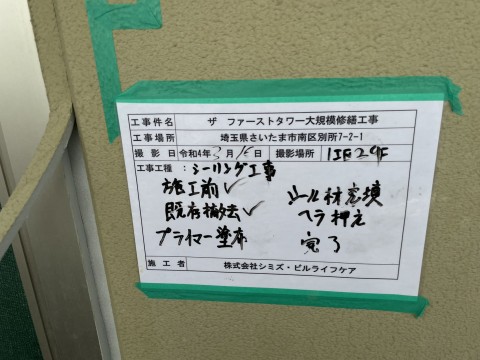 工事件名 ザ ファーストタワー大規模修繕工事
工事場所 埼玉県さいたま市南区別所7-2-1
撮影日 令和4年3月15日 撮影場所
工事工種: シーリング工事
施工前✓ シール材充填
既存撤去✓ ヘラ押え
プライマー塗布 完了
施工者 株式会社シミズ・ビルライフケア